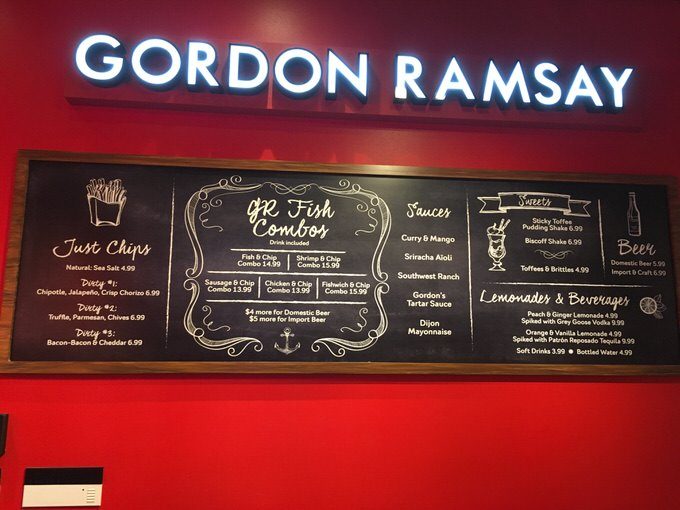 GORDON RAMSAY
Just Chips
Natural: Sea Salt 4.99
Dirty #1:
Chipotle, Jalapeño, Crisp Chorizo 6.99
Dirty #2:
Truffle, Parmesan, Chives 6.99
Dirty #3:
Bacon-Bacon & Cheddar 6.99
GR Fish
Combos
Drink included
Fish & Chip
Combo 14.99
Shrimp & Chip
Combo 15.99
Sausage & Chip
Combo 13.99
Chicken & Chip
Combo 13.99
Fishwich & Chip
Combo 15.99
$4 more for Domestic Beer
$5 more for Import Beer
Sauces
Curry & Mango
Sriracha Aioli
Southwest Ranch
Gordon's
Tartar Sauce
Dijon
Mayonnaise
Sweets
Sticky Toffee
Pudding Shake 6.99
Biscoff Shake 6.99
Toffees & Brittles 4.99
Beer
Domestic Beer 5.99
Import & Craft 6.99
Lemonades & Beverages
Peach & Ginger Lemonade 4.99
Spiked with Grey Goose Vodka 9.99
Orange & Vanilla Lemonade 4.99
Spiked with Patrón Reposado Tequila 9.99
Soft Drinks 3.99 • Bottled Water 4.99